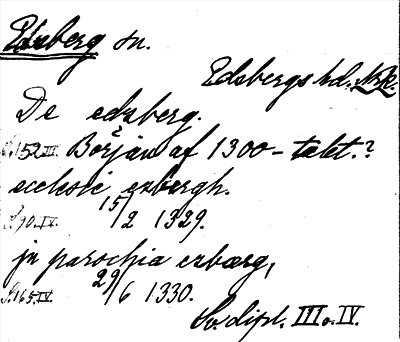 Edsberg sn.
Edsbergs hd. Nrk.
De edzberg.
S. 152 III. Början af 1300-talet.?
ecclesie ezbergh.
S. 90. IV. 15/2 1329.
jn parochia ezbærg,
S. 165. IV. 29/6 1330.
Sv. dipl. III o. IV.